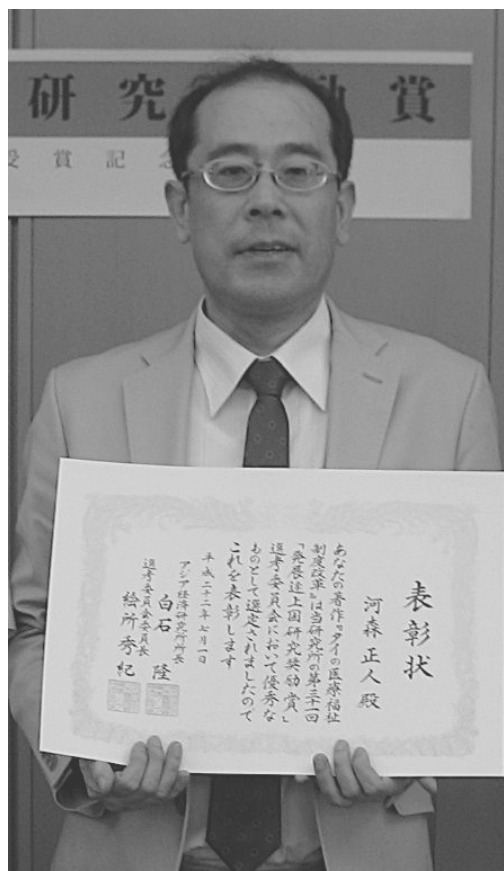 研究
励賞
受賞記念
表彰状
河森正人殿
あなたの著作『タイの医療福祉
制度改革』は当研究所の第三十一回
「発展途上国研究奨励賞」
選考委員会において優秀な
ものとして選定されましたので
これを表彰します
平成二十二年七月一日
アジア経済研究所所長
白石隆
選考委員会委員長
絵所秀紀